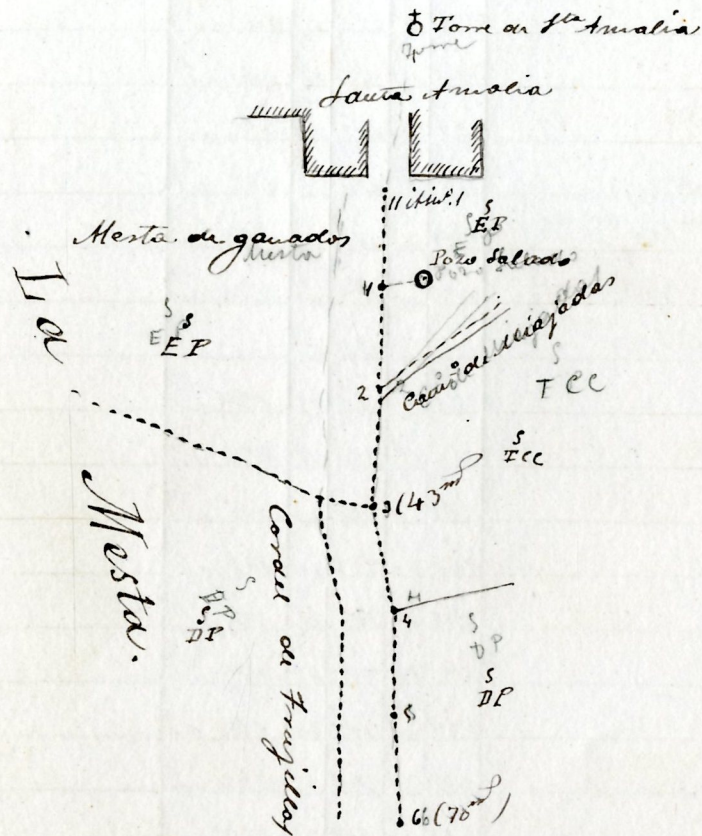 Torre de Sta Amalia
Torre
Santa Amalia
Itinº. 1
S
EP
Mesta de ganados
Mesta
Pozo Salado
S
EP
Camº de Miajadas
2
S
TCC
S
TCC
3 (43 m)
La Mesta.
Cordel de Trujillo
H
4
S
DP
S
DP
S
DP
S
DP
5
6 (70 m)